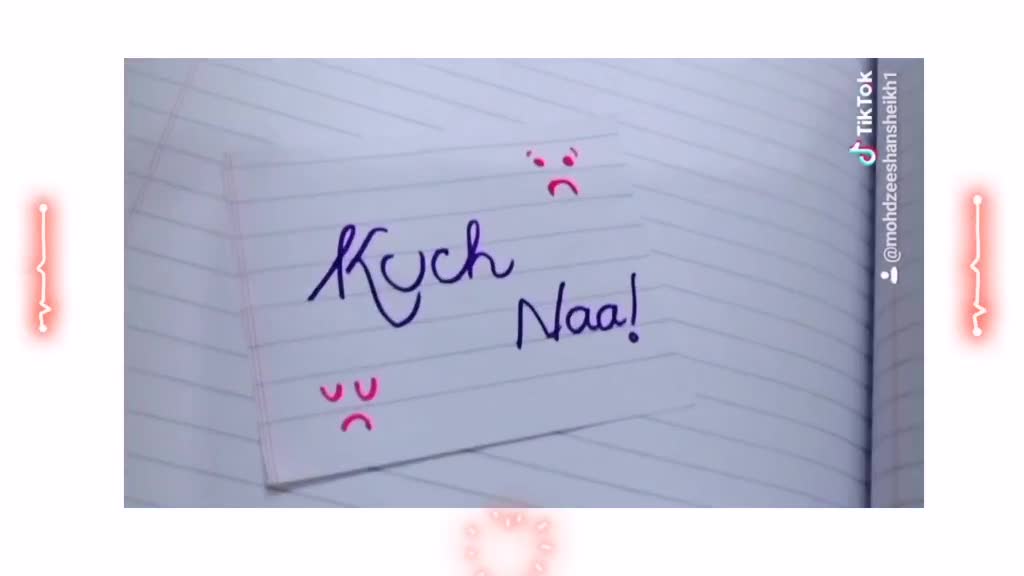 Kuch
Naa!
TikTok
@mohdzeeshansheikh1